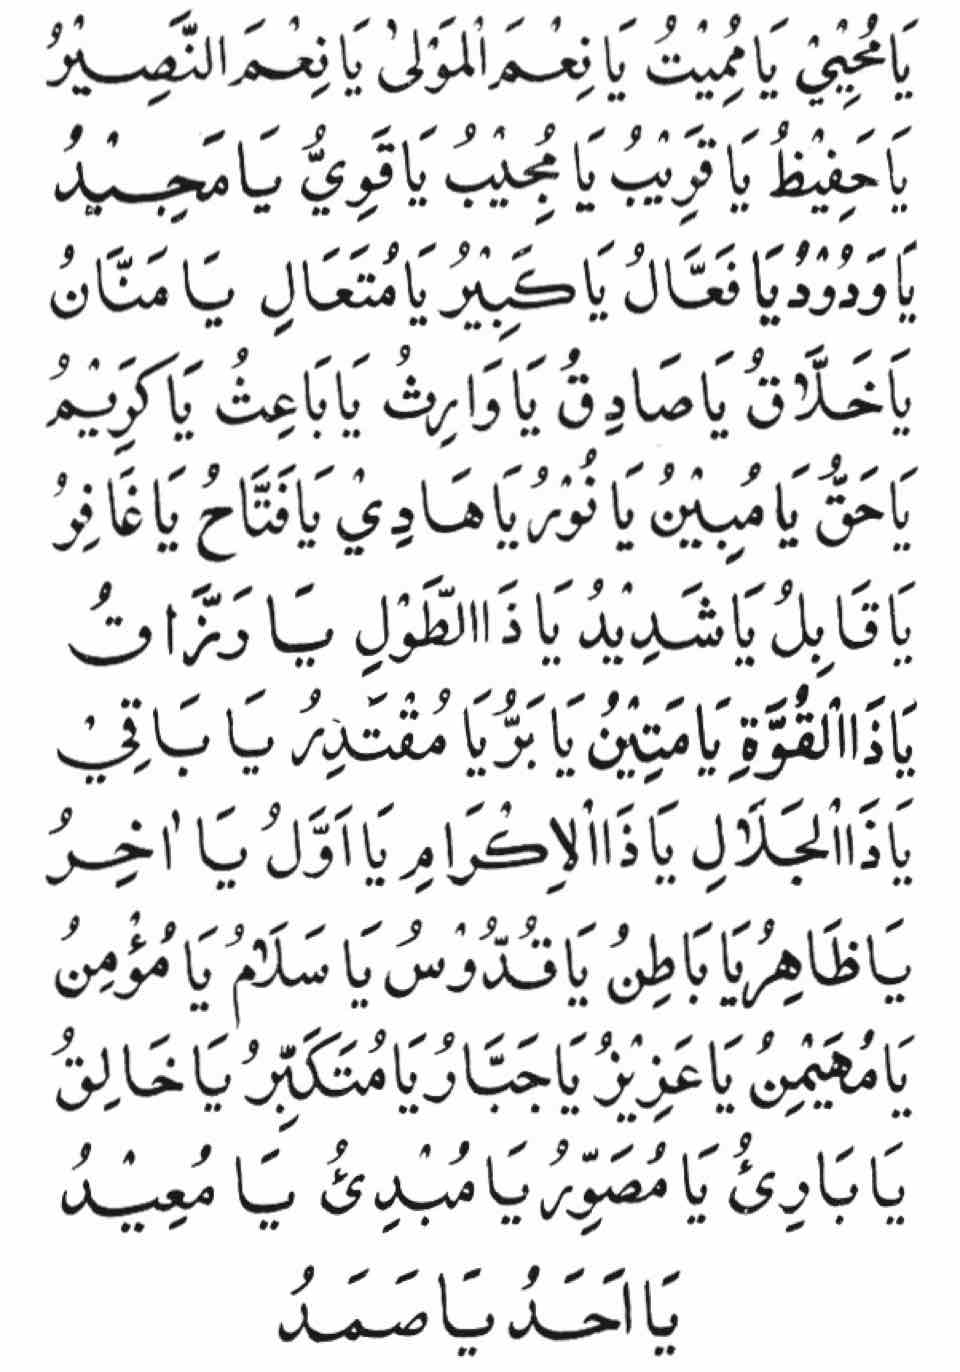 يَا مُحْيِيْ يَا مُمِيْتُ يَا نِعْمَ الْمَوْلٰى يَا نِعْمَ النَّصِيْرُ
يَا حَفِيْظُ يَا قَرِيْبُ يَا مُجِيْبُ يَا قَوِيُّ يَا مَجِيْدُ
يَا وَدُوْدُ يَا فَعَّالُ يَا كَبِيْرُ يَا مُتَعَالِ يَا مَنَّانُ
يَا خَلَّاقُ يَا صَادِقُ يَا وَارِثُ يَا بَاعِثُ يَا كَرِيْمُ
يَا حَقُّ يَا مُبِيْنُ يَا نُوْرُ يَا هَادِيْ يَا فَتَّاحُ يَا غَافِرُ
يَا قَابِلُ يَا شَدِيْدُ يَا ذَا الطَّوْلِ يَا رَزَّاقُ
يَا ذَا الْقُوَّةِ يَا مَتِيْنُ يَا بَرُّ يَا مُقْتَدِرُ يَا بَاقِيْ
يَا ذَا الْجَلَالِ يَا ذَا الْاِكْرَامِ يَا اَوَّلُ يَا اٰخِرُ
يَا ظَاهِرُ يَا بَاطِنُ يَا قُدُّوْسُ يَا سَلَامُ يَا مُؤْمِنُ
يَا مُهَيْمِنُ يَا عَزِيْزُ يَا جَبَّارُ يَا مُتَكَبِّرُ يَا خَالِقُ
يَا بَارِئُ يَا مُصَوِّرُ يَا مُبْدِئُ يَا مُعِيْدُ
يَا اَحَدُ يَا صَمَدُ